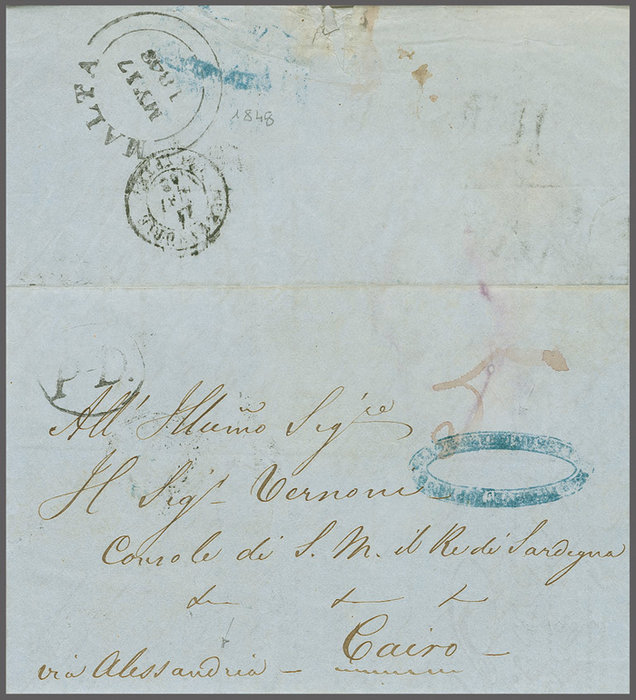 MALTA
MY 17
1848
1848
P.D.
All' Illmo Sigre
Il Sigr. Vernoni
Console di S. M. il Re di Sardegna
Cairo
via Alessandria